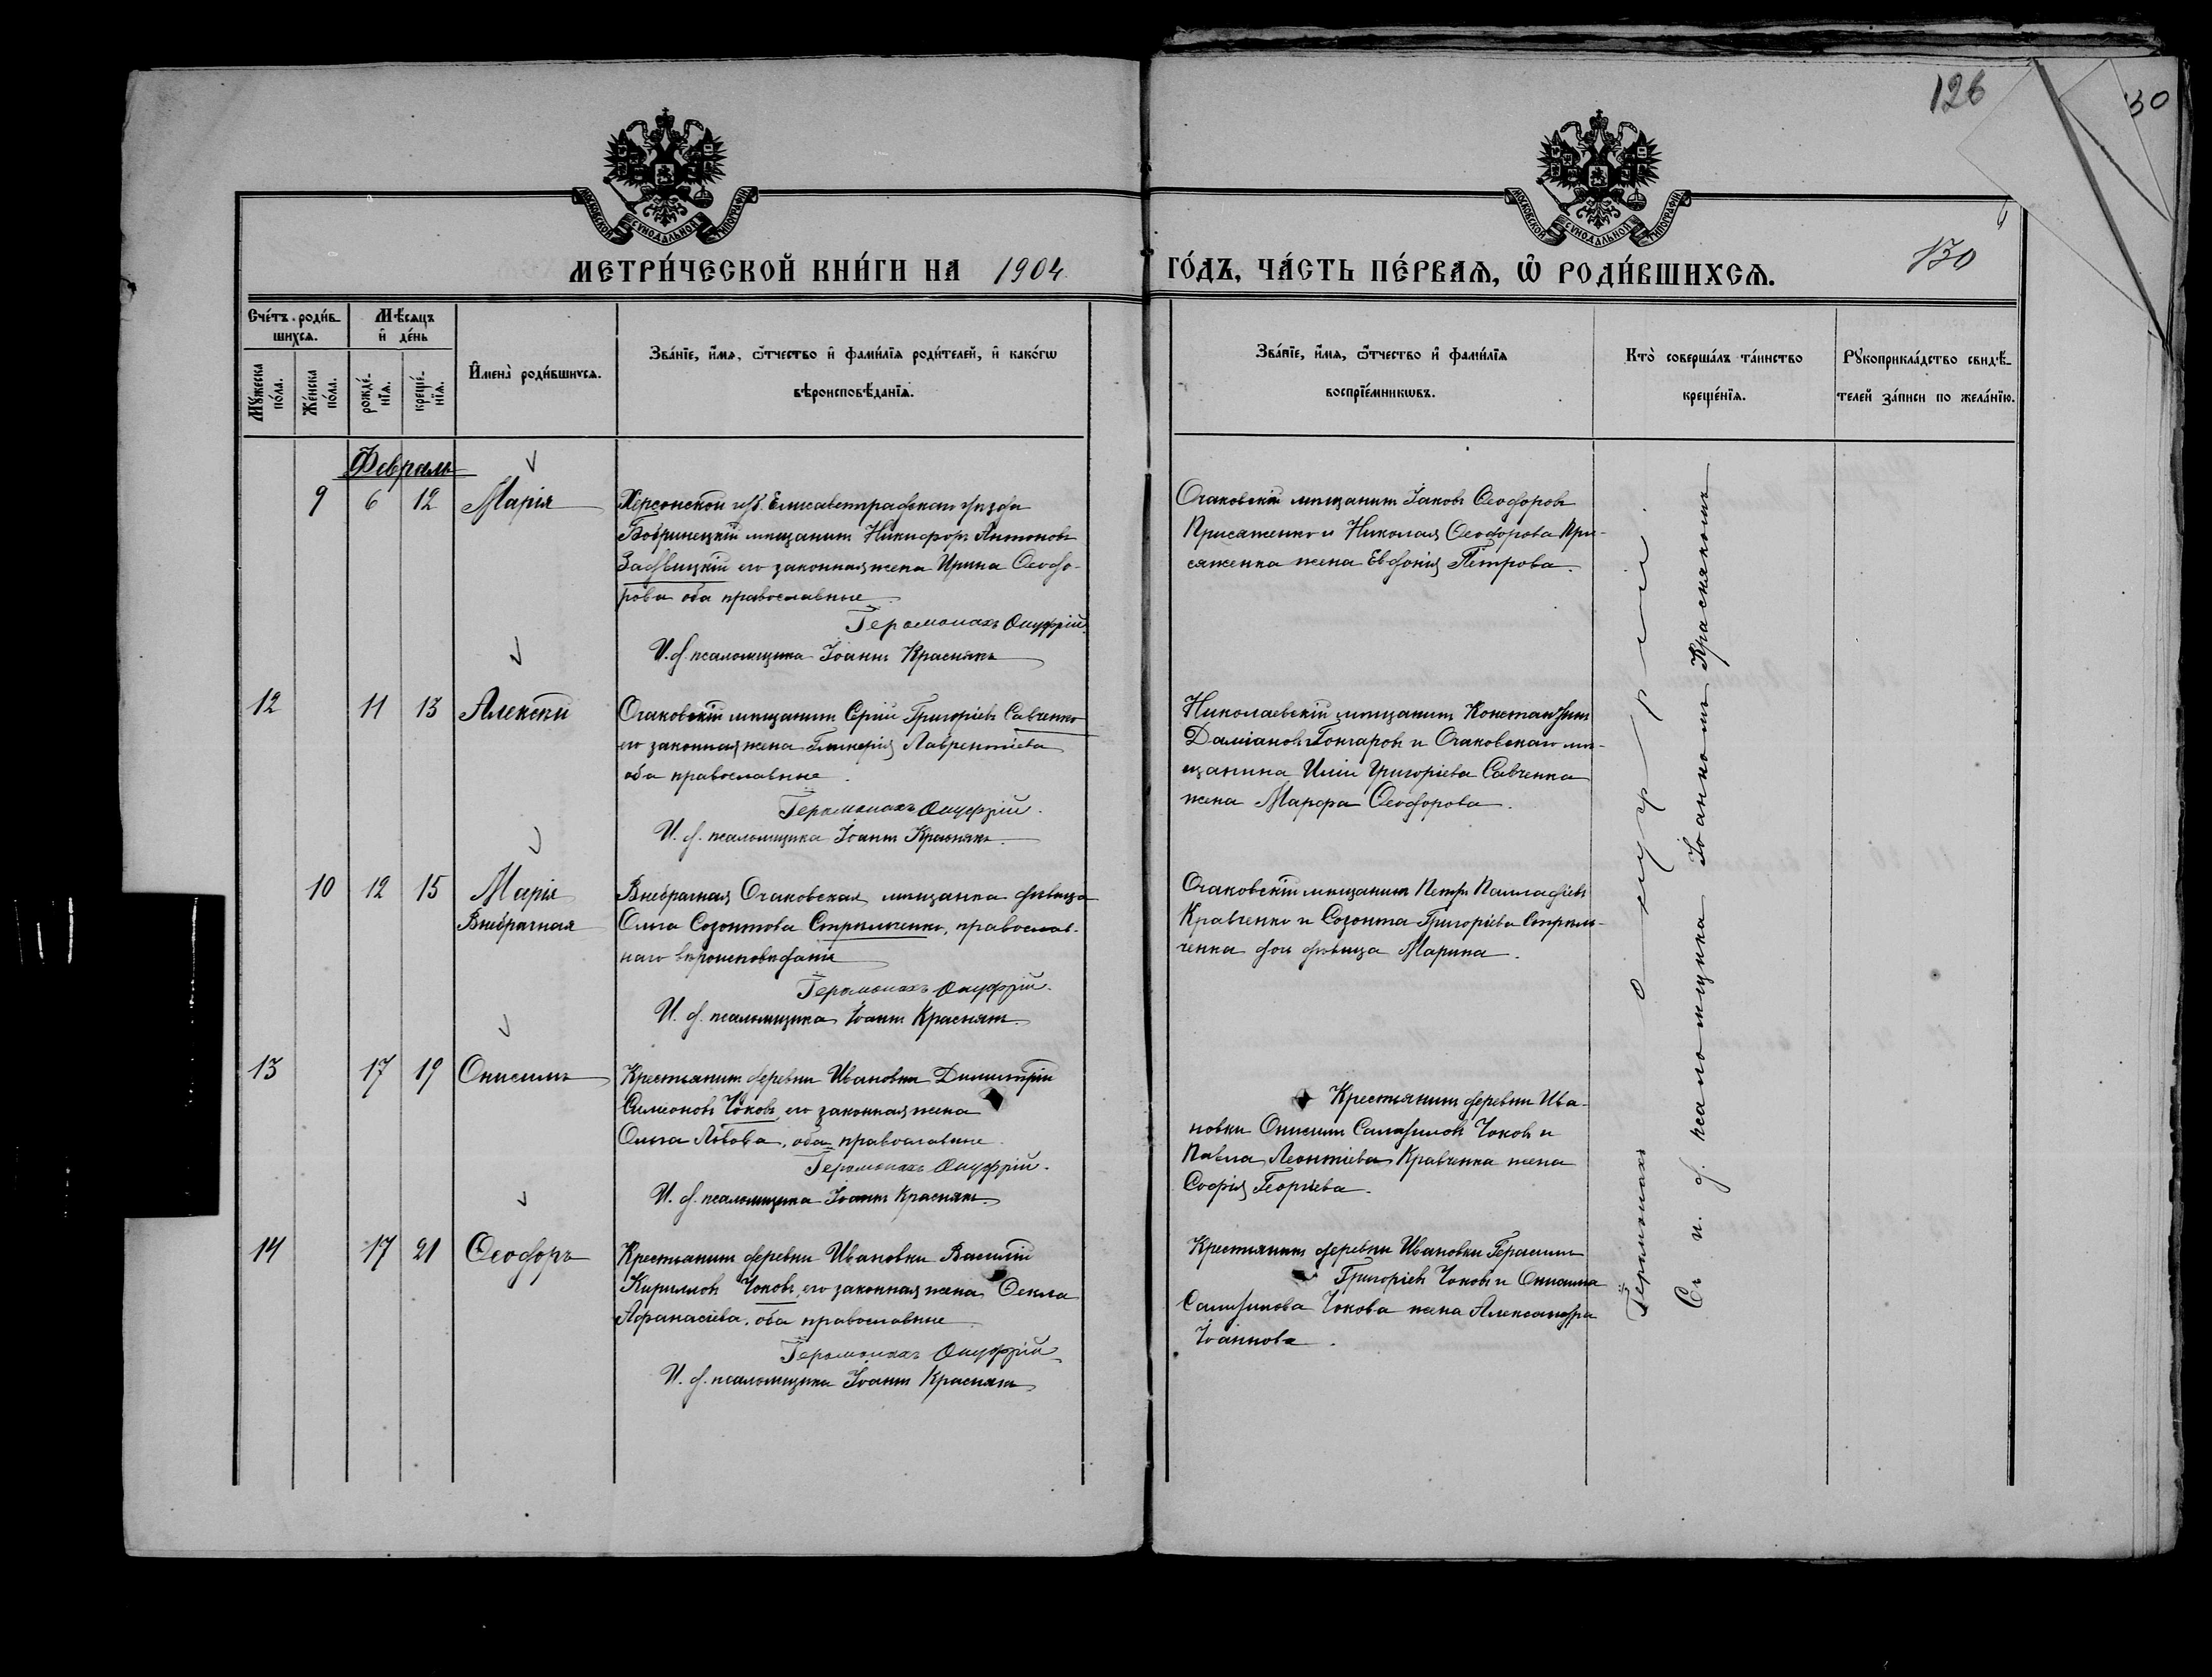 126
30
МОСКОВСКОЙ СУНОДАЛЬНОЙ ТИПОГРАФІИ
МОСКОВСКОЙ СУНОДАЛЬНОЙ ТИПОГРАФІИ
МЕТРИ́ЧЕСКОЙ КНИ́ГИ НА 1904 ГО́ДЪ, ЧА́СТЬ ПЕ́РВАЯ, Ѡ РОДИ́ВШИХСѦ.
130
Сче́тъ роди́в-
шихсѧ.
Мѣ́сѧцъ
и де́нь
Мꙋ́жеска
по́ла.
Же́нска
по́ла.
рожде́-
нїѧ.
креще́-
нїѧ.
Имена̀ роди́вшихсѧ.
Зва́нїе, и́мѧ, ѻ́тчество и фами́лїѧ роди́телей, и како́гѡ
вѣроисповѣ́данїѧ.
Зва́нїе, и́мѧ, ѻ́тчество и фами́лїѧ
воспрїе́мникѡвъ.
Кто̀ соверша́лъ та́инство
креще́нїѧ.
Рꙋкоприкла́дство свидѣ́-
телей за́писи по жела́нїю.
Февраль
9 6 12 Марія
Херсонской губ. Елисаветградскаго уѣзда
Бобринецкій мѣщанинъ Никифоръ Антоновъ
его законная жена Ирина Ѳеодо-
рова оба православные
Іеромонахъ Онуфрій.
И. д. псаломщика Іоаннъ Краснякъ
Очаковскій мѣщанинъ Іаковъ Ѳеодоровъ
Присяженко и Николая Ѳеодорова При-
сяженка жена Евдокія Петрова.
12 11 13 Алексѣй
Очаковскій мѣщанинъ Сергій Григоріевъ Савченко
его законная жена Гликерія Лаврентіева
оба православные.
Іеромонахъ Онуфрій.
И. д. псаломщика Іоаннъ Краснякъ.
Николаевскій мѣщанинъ Константинъ
Даміановъ Гончаровъ и Очаковскаго мѣ-
щанина Иліи Григоріева Савченка
жена Марфа Ѳеодорова.
10 12 15 Марія
Внебрачная
Внебрачная Очаковская мѣщанка дѣвица
Ольга Созонтова Стрѣльченко, православ-
наго вѣроисповѣданія
Іеромонахъ Онуфрій.
И. д. псаломщика Іоаннъ Краснякъ.
Очаковскій мѣщанинъ Петръ Палладіевъ
Кравченко и Созонта Григоріева Стрѣль-
ченка дочь дѣвица Марина.
13 17 19 Онисимъ
Крестьянинъ деревни Ивановки Димитрій
Симеоновъ Чоковъ, его законная жена
Ольга Львова, оба православные.
Іеромонахъ Онуфрій.
И. д. псаломщика Іоаннъ Краснякъ.
Крестьянинъ деревни Ива-
новки Онисимъ Чоковъ и
Павла Леонтіева Кравченка жена
Софія Георгіева.
14 17 21 Ѳеодоръ
Крестьянинъ деревни Ивановки Василій
Кирилловъ Чоковъ, его законная жена Ѳекла
Афанасіева, оба православные
Іеромонахъ Онуфрій
И. д. псаломщика Іоаннъ Краснякъ
Крестьянинъ деревни Ивановки Герасимъ
Григоріевъ Чоковъ и Онисима
Чокова жена Александра
Іоаннова.
Іеромонахъ Онуфрій.
Съ и. д. псаломщика Іоанномъ Краснякомъ